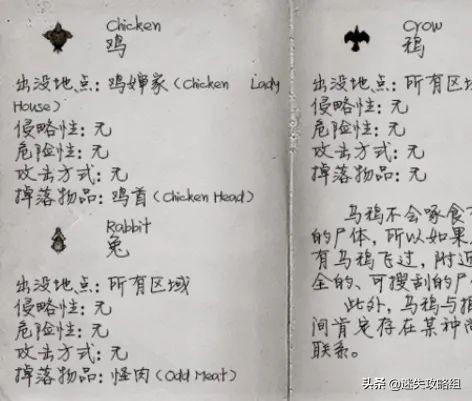 Chicken
鸡
出没地点：鸡婶家（Chicken Lady
House）
侵略性：无
危险性：无
攻击方式：无
掉落物品：鸡首（Chicken Head）
Rabbit
兔
出没地点：所有区域
侵略性：无
危险性：无
攻击方式：无
掉落物品：怪肉（Odd Meat）
Crow
鸦
出没地点：所有区
侵略性：无
危险性：无
攻击方式：无
掉落物品：无
乌鸦不会啄食
的尸体，所以如果
有乌鸦飞过，附近
全的、可搜刮的尸
此外，乌鸦与
间肯定存在某种
联系。
头条 @迷失攻略组